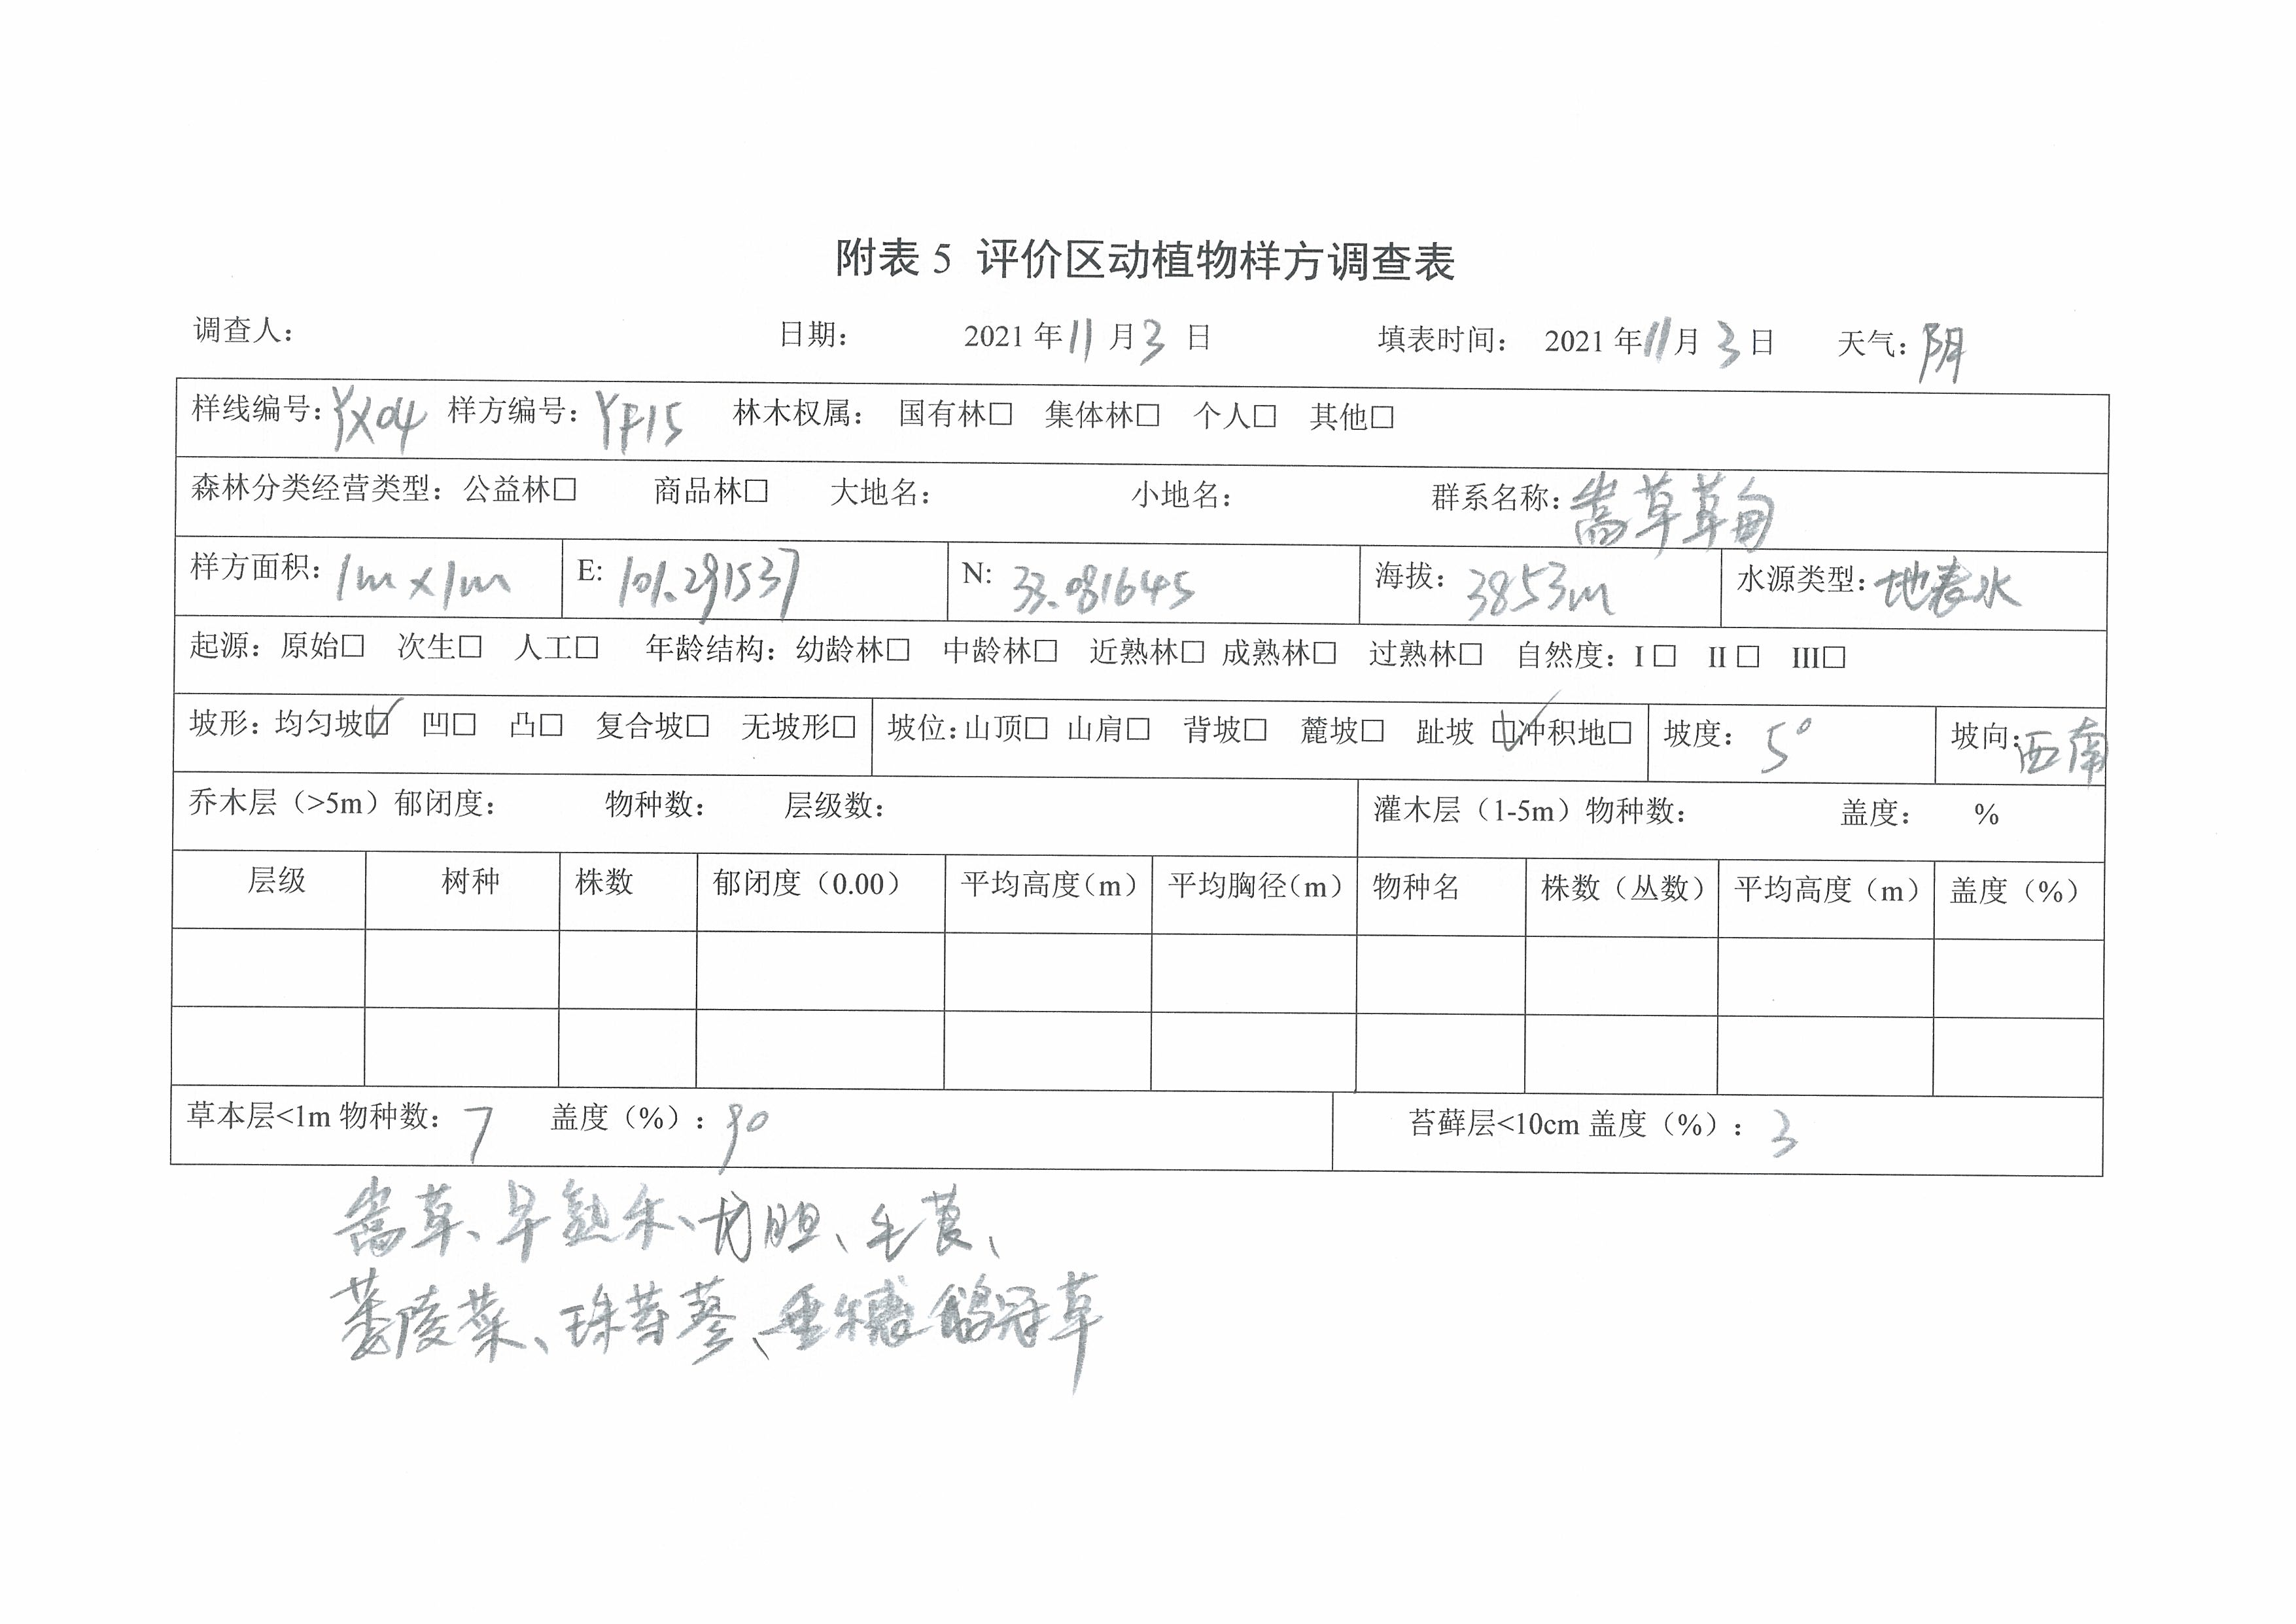 附表 5 评价区动植物样方调查表
调查人： 日期： 2021 年 11 月 3 日 填表时间： 2021 年 11 月 3 日 天气：阴
样线编号：YX04 样方编号：YF15 林木权属： 国有林□ 集体林□ 个人□ 其他□
森林分类经营类型：公益林□ 商品林□ 大地名： 小地名： 群系名称：嵩草草甸
样方面积：1m×1m E: 101.291537 N: 33.081645 海拔：3853m 水源类型：地表水
起源：原始□ 次生□ 人工□ 年龄结构：幼龄林□ 中龄林□ 近熟林□ 成熟林□ 过熟林□ 自然度：I □ II □ III□
坡形：均匀坡☑ 凹□ 凸□ 复合坡□ 无坡形□ 坡位：山顶□ 山肩□ 背坡□ 麓坡□ 趾坡 ☑冲积地□ 坡度：5° 坡向：西南
乔木层（>5m）郁闭度： 物种数： 层级数： 灌木层（1-5m）物种数： 盖度： %
层级 树种 株数 郁闭度（0.00） 平均高度（m） 平均胸径（m） 物种名 株数（丛数） 平均高度（m） 盖度（%）
草本层<1m 物种数：7 盖度（%）：90 苔藓层<10cm 盖度（%）：3
嵩草、早熟禾、龙胆、毛茛、
萎陵菜、珠芽蓼、垂穗鹅冠草